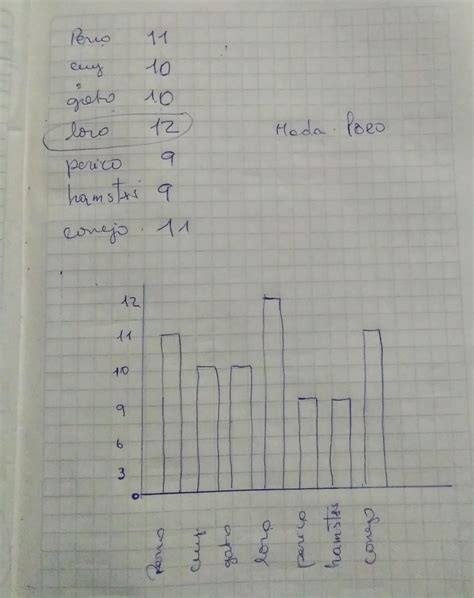 Perro 11
cuy 10
gato 10
loro 12
Moda: loro
perico 9
hamster 9
conejo. 11
12
11
10
9
6
3
0
Perro
cuy
gato
loro
perico
hamster
conejo